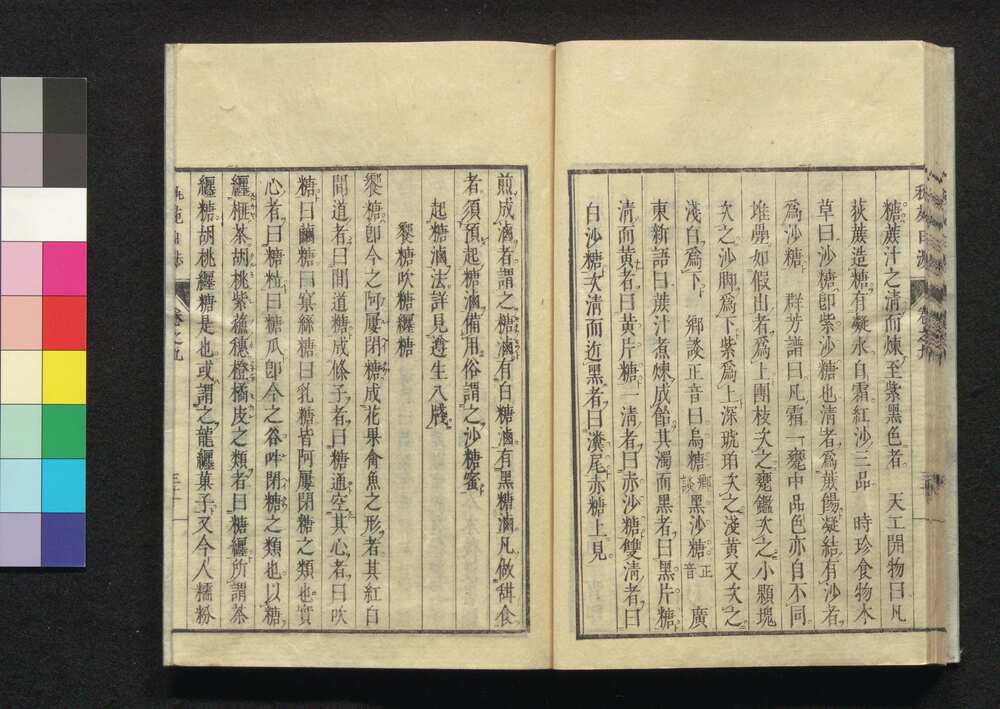 糖蔗汁之清而煉至紫黑色者　天工開物曰凡
荻蔗造糖有凝氷白霜紅沙三品　時珍食物本
草曰沙糖即紫沙糖也清者為蔗餳凝結有沙者
為沙糖　群芳譜曰凡霜一甕中品色亦自不同
堆疊如假山者為上團枝次之甕鑑次之小顆塊
次之沙脚為下紫為上深琥珀次之淺黄又次之
淺白為下　郷談正音曰烏糖郷談黑沙糖正音　廣
東新語曰蔗汁煮煉成飴其濁而黑者曰黑片糖
清而黄者曰黄片糖一清者曰赤沙糖雙清者曰
白沙糖次清而近黑者曰瀵尾赤糖上見
煎成滷者謂之糖滷有白糖滷有黑糖滷凡做甜食
者須預起糖滷備用俗謂之沙糖蜜
起糖滷法詳見遵生八牋
饗糖吹糖纏糖
饗糖即今之阿屢閉糖成花果禽魚之形者其紅白
間道者曰間道糖成條子者曰糖通空其心者曰吹
糖曰繭糖曰窠絲糖曰乳糖皆阿屢閉糖之類也實
心者曰糖粒曰糖瓜即今之谷吽閉糖之類也以糖
纏榧茶胡桃紫蘓穗橙橘皮之類者曰糖纏所謂茶
纏糖胡桃纏糖是也或謂之龍纏菓子又今人糯粉
卷之九